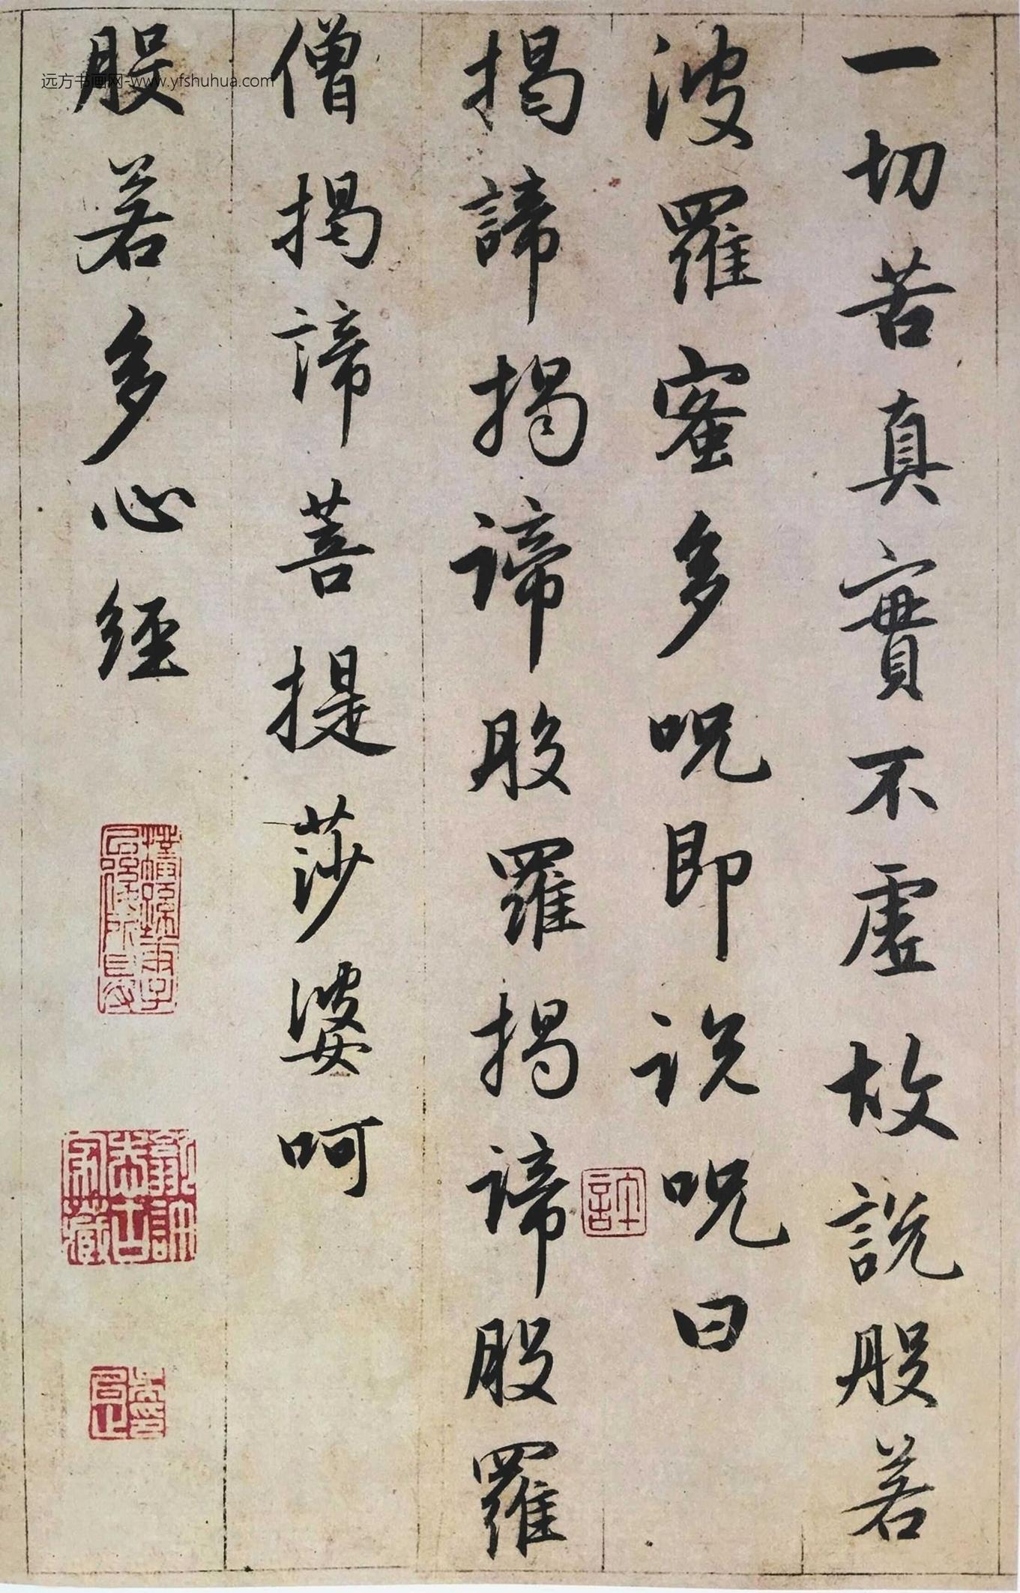 一切苦真實不虛故說般若
波羅蜜多呪即说呪曰
揭諦揭諦般羅揭諦般羅
僧揭諦菩提莎婆呵
般若多心經
远方书画网-www.yfshuhua.com